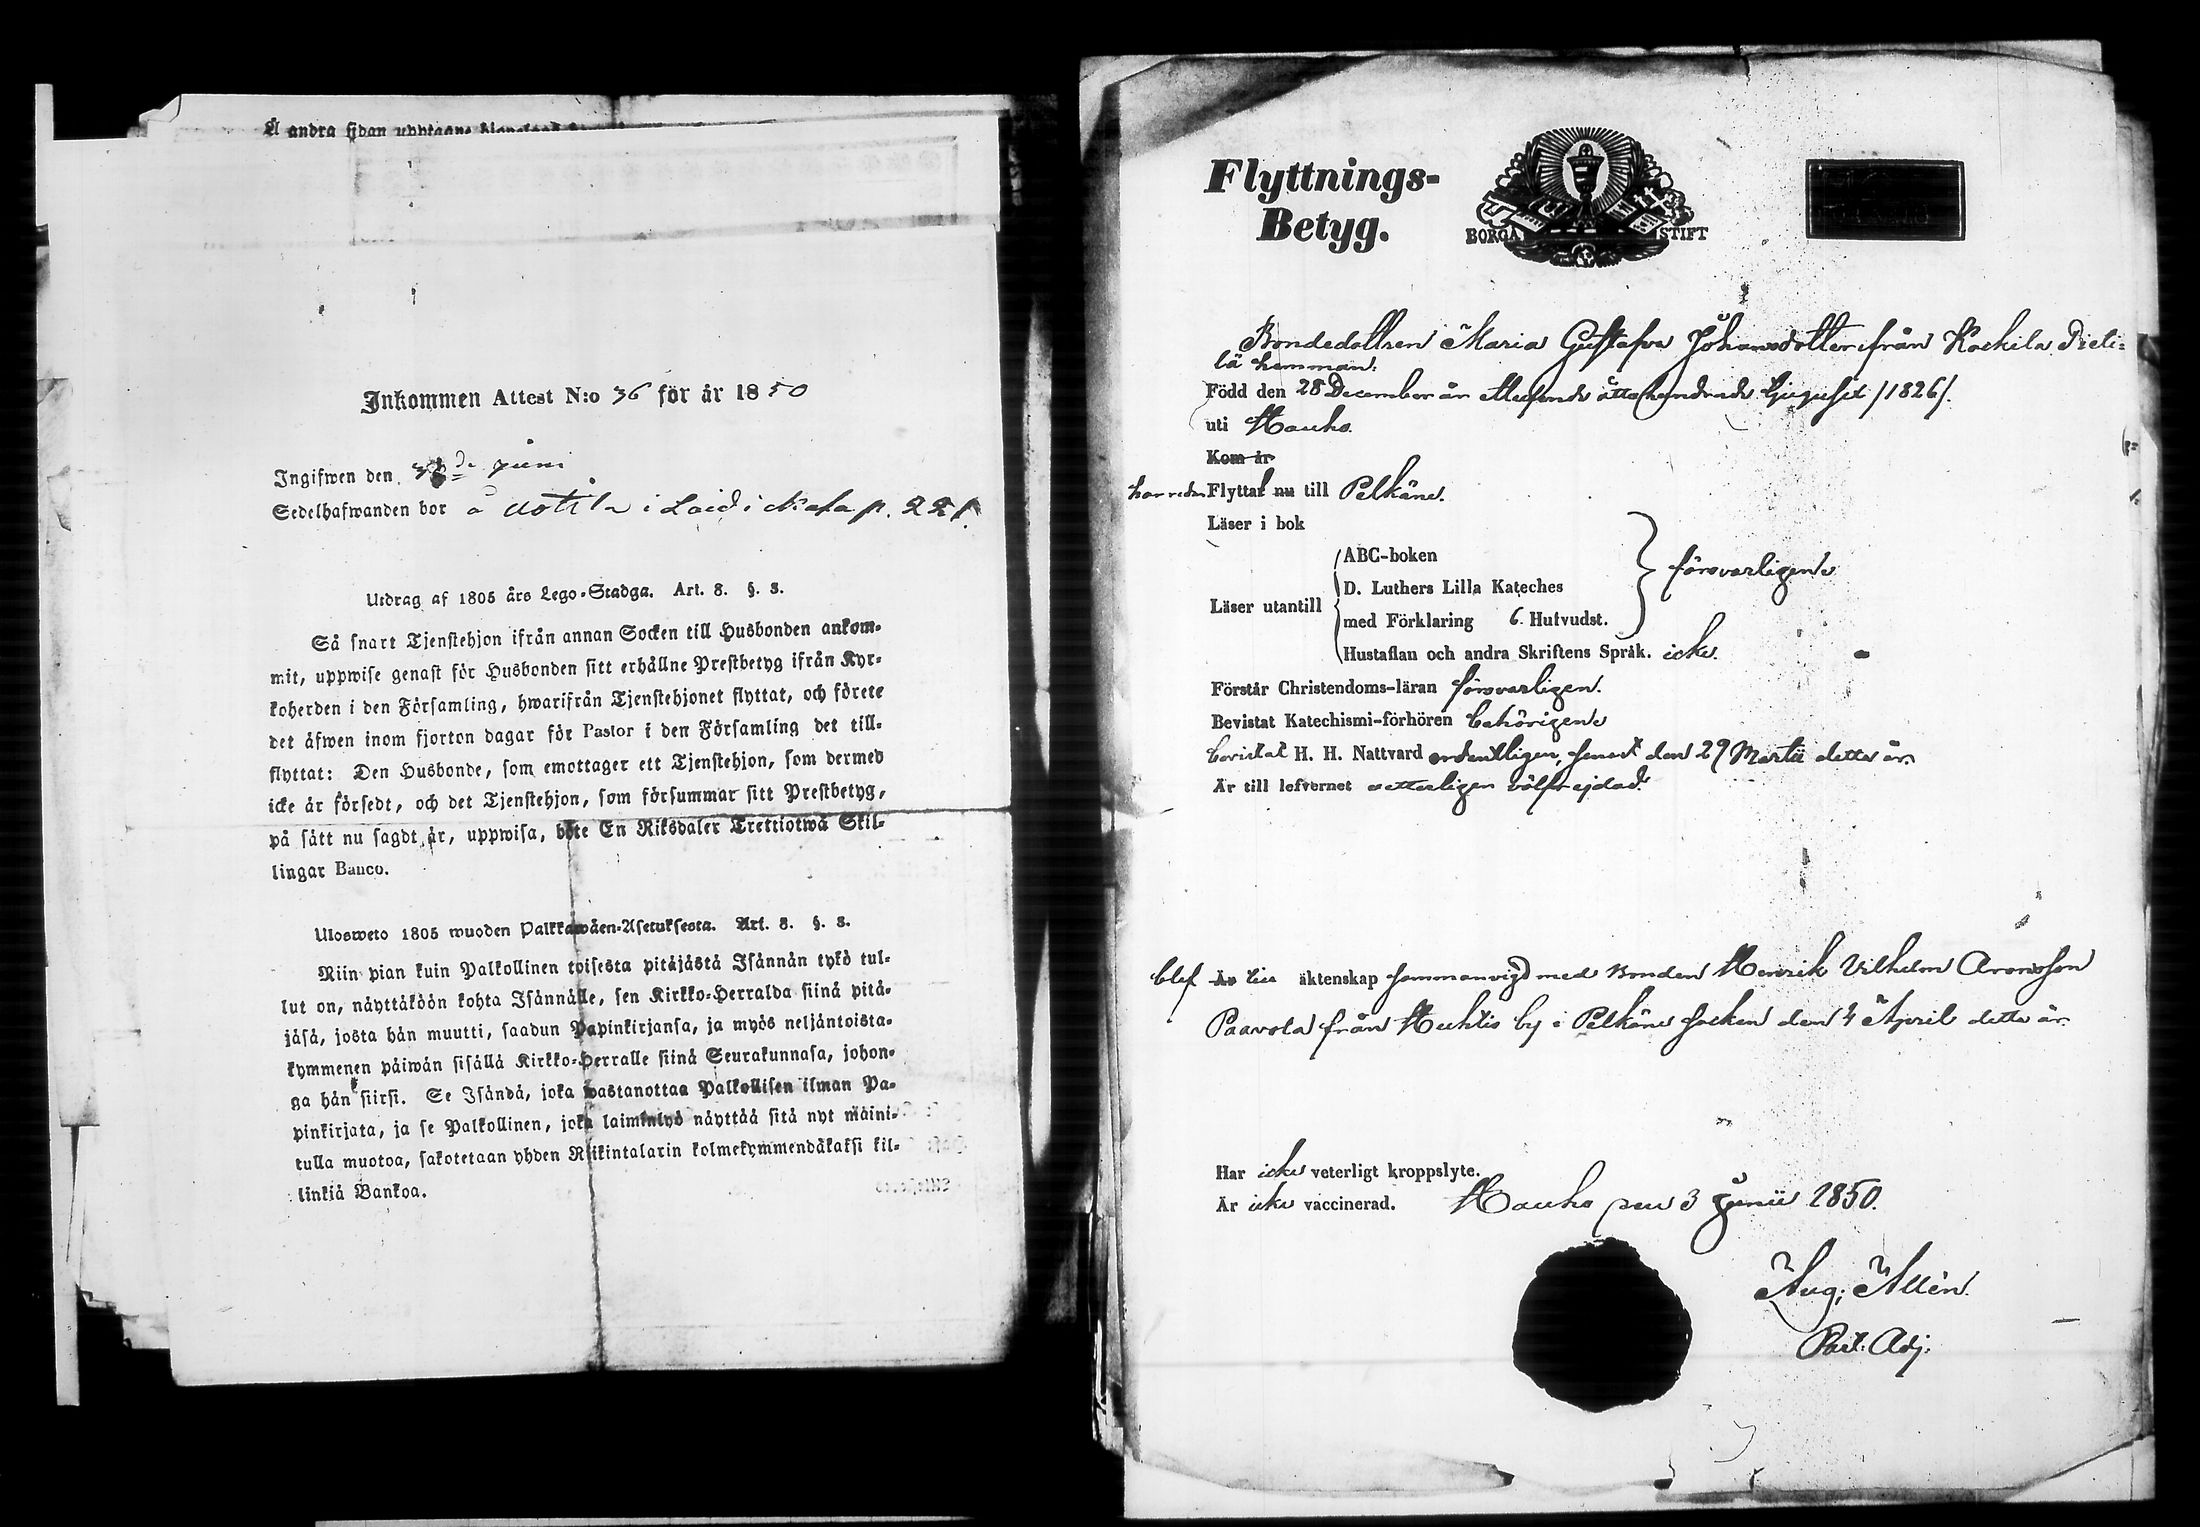 Å andra sidan
Inkommen Attest N:o 36 för år 1850
Ingifwen den juni
Sedelhafwanden bor å i p. 221.
Utdrag af 1805 års Lego-Stadga. Art. 8. §. 3.
Så snart Tjenstehjon ifrån annan Socken till Husbonden ankom-
mit, uppwise genast för Husbonden sitt erhållne Prestbetyg ifrån Kyr-
koherden i den Församling, hwarifrån Tjenstehjonet flyttat, och förete
det äfwen inom fjorton dagar för Pastor i den Församling det till-
flyttat: Den Husbonde, som emottager ett Tjenstehjon, som dermed
icke är försedt, och det Tjenstehjon, som försummar sitt Prestbetyg,
på sätt nu sagdt är, uppwisa, böte En Riksdaler Trettiotwå Skil-
lingar Banco.
Ulosweto 1805 wuoden Palkkawäen-Asetuksesta. Art. 8. §. 3.
Niin pian kuin Palkollinen toisesta pitäjästä Isännän tykö tul-
lut on, näyttäköön kohta Isännälle, sen Kirkko-Herralda siinä pitä-
jäsä, josta hän muutti, saadun Papinkirjansa, ja myös neljäntoista-
kymmenen päiwän sisällä Kirkko-Herralle siinä Seurakunnasa, johon-
ga hän siirsi. Se Isändä, joka wastanottaa Palkollisen ilman Pa-
pinkirjata, ja se Palkollinen, joka laiminlyö näyttää sitä nyt maini-
tulla muotoa, sakotetaan yhden Riikintalarin kolmekymmendäkaksi kil-
linkiä Bankoa.
Flyttnings-
Betyg.
BORGÅ STIFT
Bondedottren Maria Gustafva Johansdotter från Kockila Pieti-
lä hemman.
Född den 28 December år ettusende åttahundrade tjugusex /1826/.
uti Hauho.
Kom år
har redan Flyttat nu till Pelkäne.
Läser i bok
Läser utantill
ABC-boken
D. Luthers Lilla Kateches
med Förklaring 6. Hufvudst.
försvarligen
Hustaflan och andra Skriftens Språk. icke.
Förstår Christendoms-läran försvarligen.
Bevistat Katechismi-förhören behörigen
bevistat H. H. Nattvard ordentligen, senast den 29 Martii detta år.
Är till lefvernet vetterligen välfrejdad.
blef Är till äktenskap sammanvigd med Bonden Henrik Vilhelm Aronsson
Paavola från Huhtis by i Pelkäne socken den 4 April detta år.
Har icke veterligt kroppslyte.
Är icke vaccinerad. Hauho den 3 Junii 1850.
Aug: Allén.
Past: Adj: